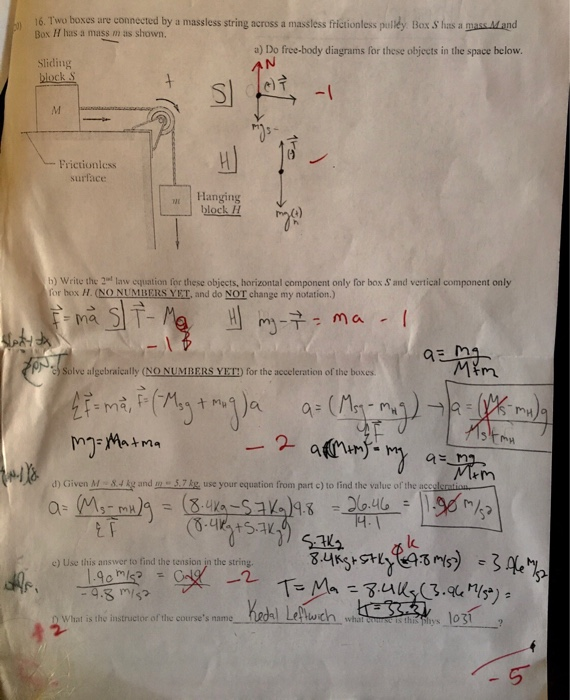 16. Two boxes are connected by a massless string across a massless frictionless pulley. Box S has a mass M and
Box H has a mass m as shown.
a) Do free-body diagrams for these objects in the space below.
Sliding
block S
M
+
Frictionless
surface
m
Hanging
block H
S]
N
(+) T
-1
mgs
H]
T
mg(+)
H
b) Write the 2nd law equation for these objects, horizontal component only for box S and vertical component only
for box H. (NO NUMBERS YET, and do NOT change my notation.)
F = ma S] T - Mg H] mg - T = ma - 1
-1
a = mg
M+m
c) Solve algebraically (NO NUMBERS YET!) for the acceleration of the boxes.
ΣF = ma, F = (-Msg + mHg)a a = (Msg - mHg) → a = (Ms - mH)g
ΣF Ms + mH
mg = Ma + ma - 2 a(M+m) = mg a = mg
M+m
d) Given M = 8.4 kg and m = 5.7 kg, use your equation from part c) to find the value of the acceleration.
a = (Ms - mH)g = (8.4kg - 5.7kg)9.8 = 26.46 = 1.90 m/s²
ΣF (8.4kg + 5.7kg) 14.1
5.7kg
8.4kg + 5.7kg (9.8 m/s²) = 3.96 m/s²
ok
e) Use this answer to find the tension in the string.
1.90 m/s² = -2
-9.8 m/s²
T = Ma = 8.4kg (3.96 m/s²) =
f) What is the instructor of the course's name Kedal Leftwich what course is this phys 1031 ?
+2
-5